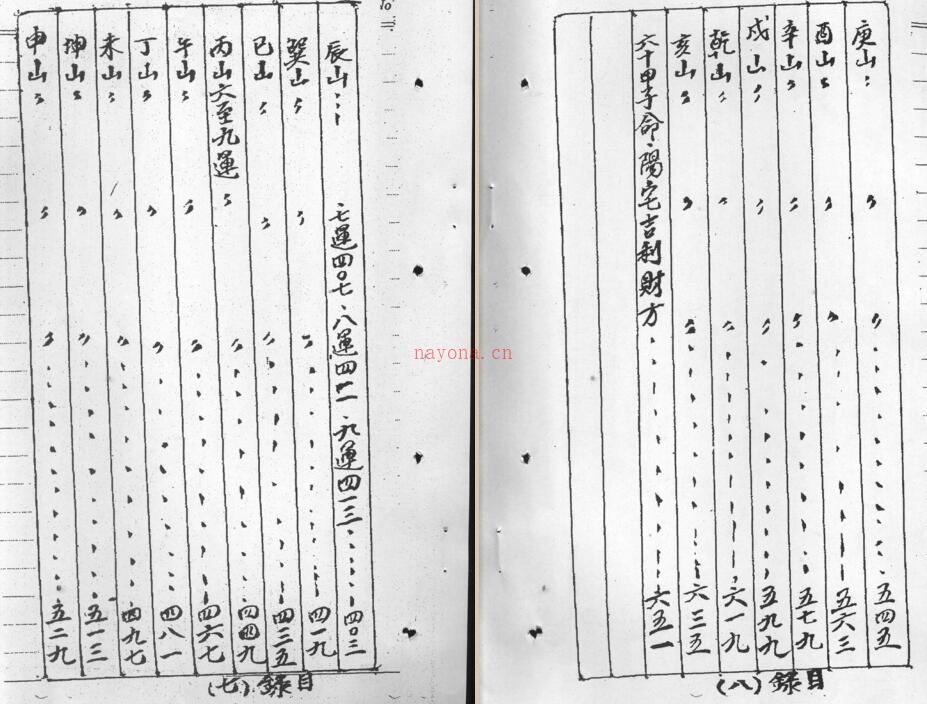 辰山 七運四〇七、八運四一一、九運四一三 四〇三
巽山 四一九
巳山 四三五
丙山六至九運 四四九
午山 四六七
丁山 四八一
未山 四九七
坤山 五一三
申山 五二九
目錄(七)
庚山 五四五
酉山 五六三
辛山 五七九
戍山 五九九
乾山 六一九
亥山 六三五
六十甲子命、陽宅吉利財方 六五一
目錄(八)
nayona.cn